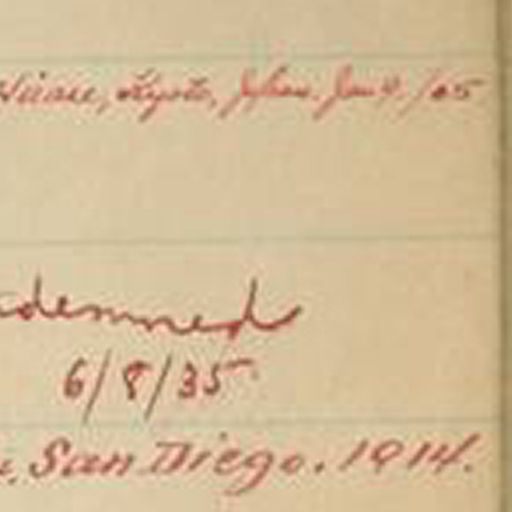 Hirase, Kyoto, Japan. Jan 9. /05
ndemned
6/8/35
San Diego. 1914.